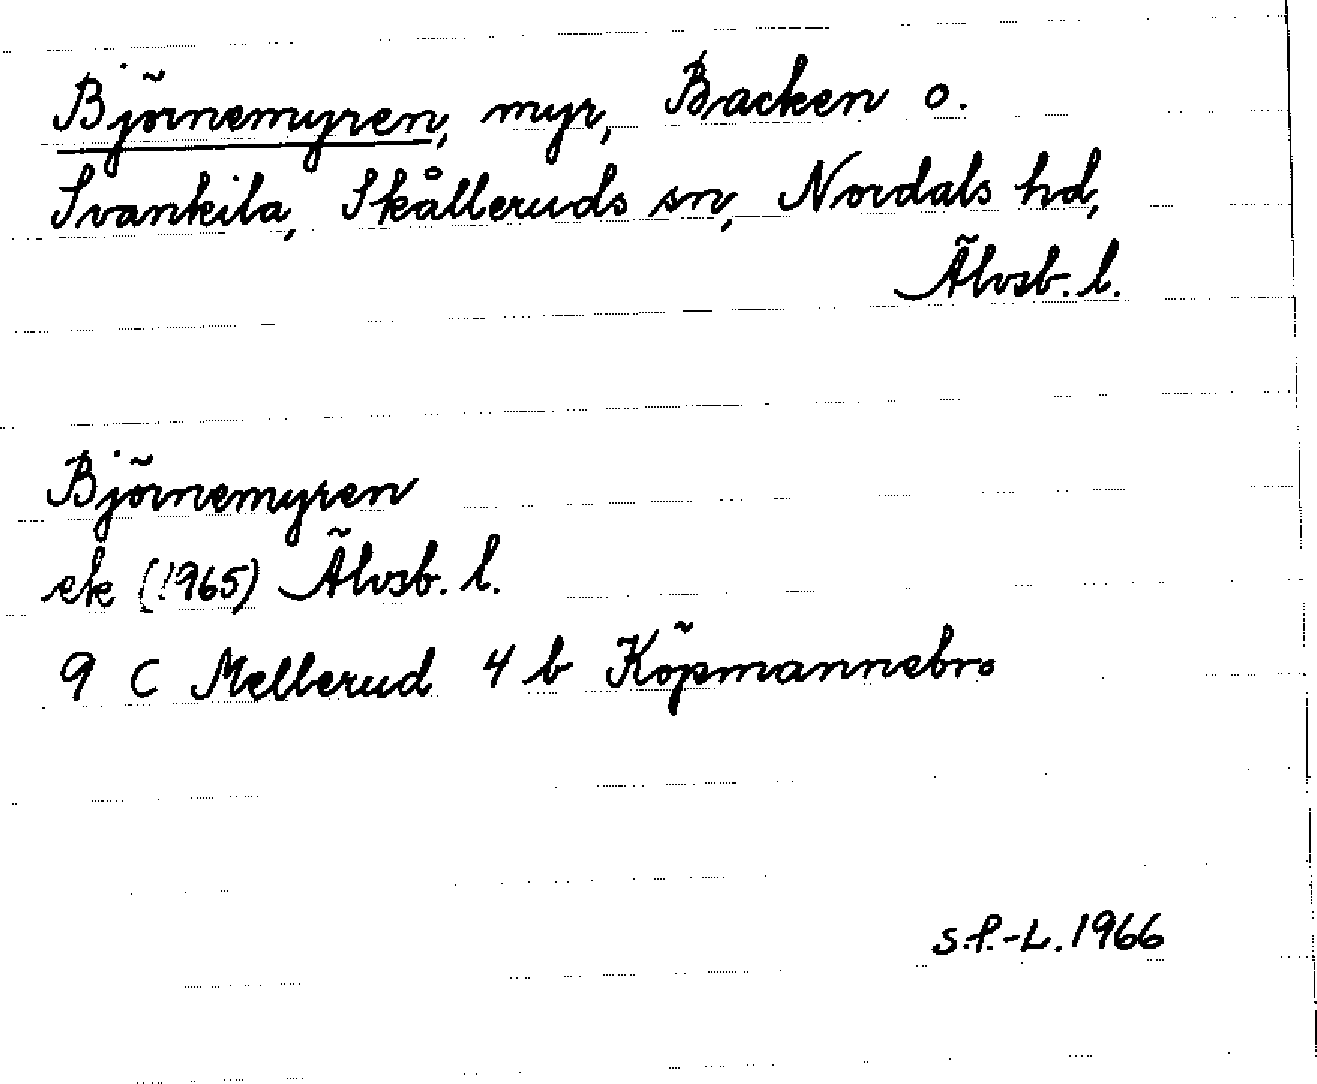 Björnemyren, myr, Backen o.
Svankila, Skålleruds sn, Nordals hd,
Älvsb. l.
Björnemyren
ek (1965) Älvsb. l.
9 C Mellerud 4 b Köpmannebro
S.P.-L. 1966